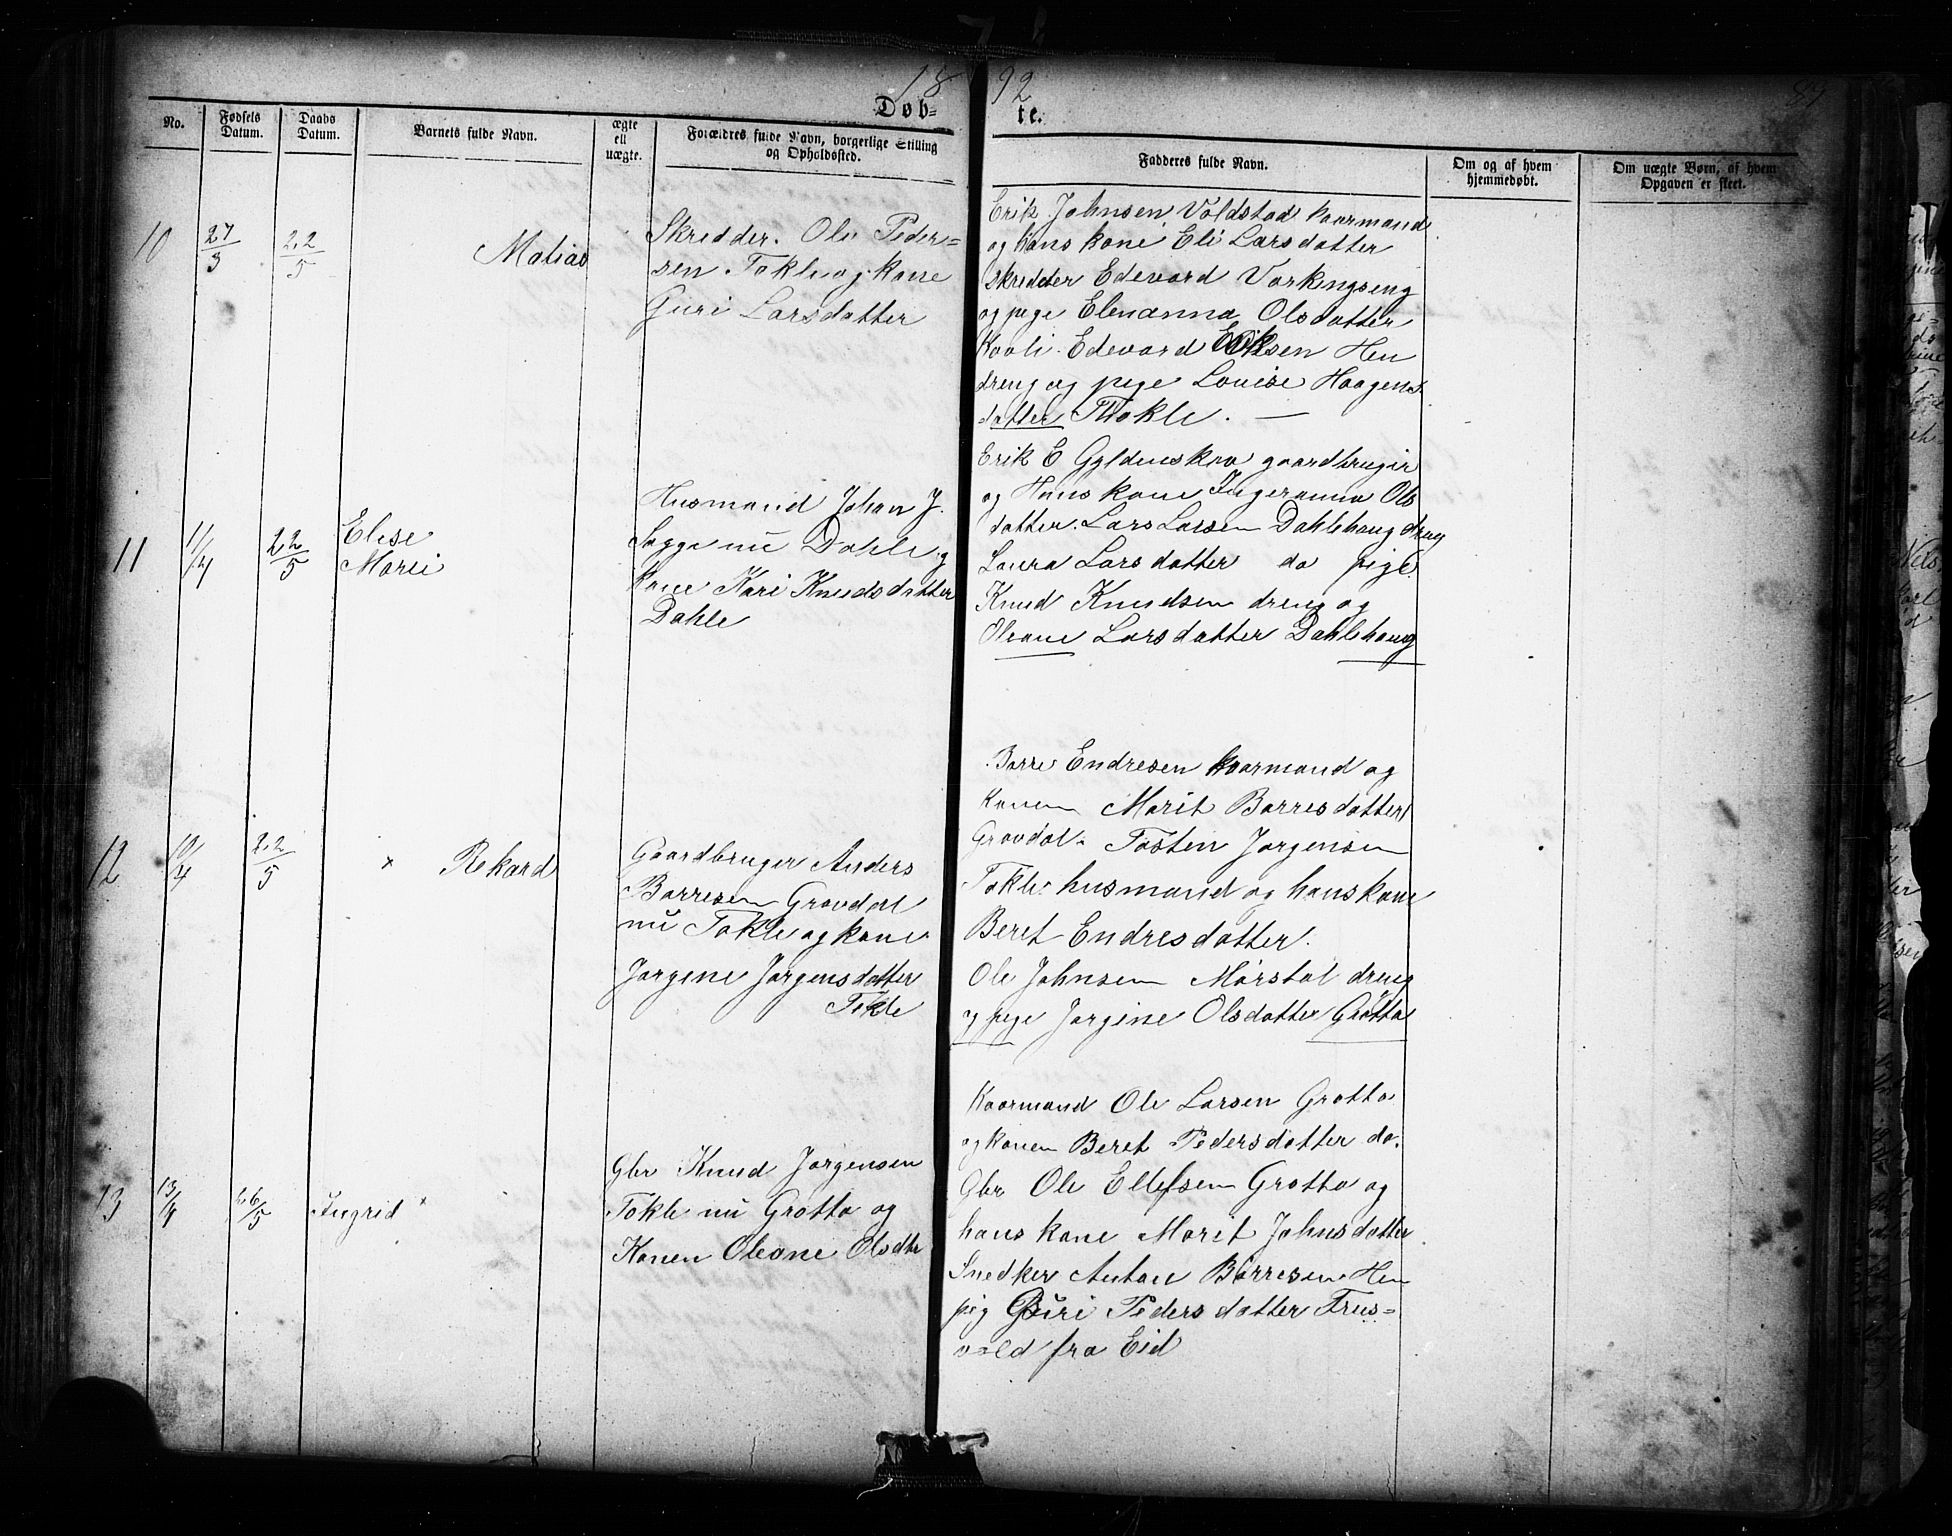 1892
89
Døb-te.
No.
Fødsels Datum.
Daabs Datum.
Barnets fulde Navn.
ægte ell uægte.
Forældres fulde Navn, borgerlige Stilling og Opholdssted.
Fadderes fulde Navn.
Om og af hvem hjemmedøbt.
Om uægte Børn, af hvem Opgaven er skeet.
10
27/3
22/5
Matias
Skredder. Ole Peder-
sen Tokle og kone
Guri Larsdatter
Erik Johnsen Voldstad kaarmand
og hans kone Eli Larsdatter
skredder Edevard Vorkingseng
og pige Elenanna Olsdatter
Edevard Eriksen Hen
dreng og pige Louise Haagens-
datter Tokle. —
11
11/4
22/5
Elise
Marii
Husmand Johan J.
Sogge nu Dahle og
kone Kari Knudsdatter
Dahle
Erik E Gyldenskov gaardbruger
og Hans kone Ingeranna Ols
datter. Lars Larsen Dahlehaug dreng
Laura Larsdatter do pige
Knud Knudsen dreng og
Oleane Larsdatter Dahlehaug
12
10/4
22/5
× Rekard
Gaardbruger Anders
Børresen Grøvdal
nu Tokle og kone
Jørgine Jørgensdatter
Tokle
Børre Endresen kaarmand og
Konen Marit Børresdatter
Grøvdal. Tosten Jørgensen
Tokle husmand og hans kone
Beret Endresdatter.
Ole Johnsen Mørstøl dreng
og pige Jørgine Olsdatter Grøtta
13
13/4
26/5
Ingrid ×
Gbr Knud Jørgensen
Tokle nu Grøtta og
Konen Oleane Olsdtr
Kaarmand Ole Larsen Grøtta
og konen Beret Pedersdatter do.
Gbr Ole Ellefsen Grøtta og
hans kone Marit Johnsdatter
Snedker Anton Børresen Hen
pig Guri Pedersdatter Trus-
vold fra Eid